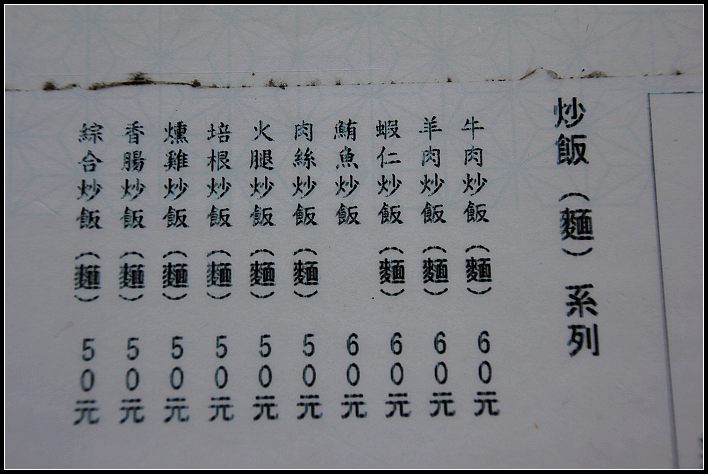 炒飯（麵）系列
牛肉炒飯（麵）60元
羊肉炒飯（麵）60元
蝦仁炒飯（麵）60元
鮪魚炒飯 60元
肉絲炒飯（麵）50元
火腿炒飯（麵）50元
培根炒飯（麵）50元
燻雞炒飯（麵）50元
香腸炒飯（麵）50元
綜合炒飯（麵）50元